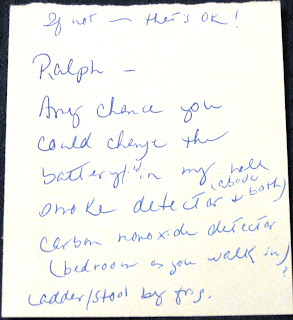 If not — that's OK!
Ralph —
Any chance you
could change the
battery(s) in my
smoke detector &
(above both)
carbon monoxide detector
(bedroom as you walk in)
?
Ladder/stool by frig.